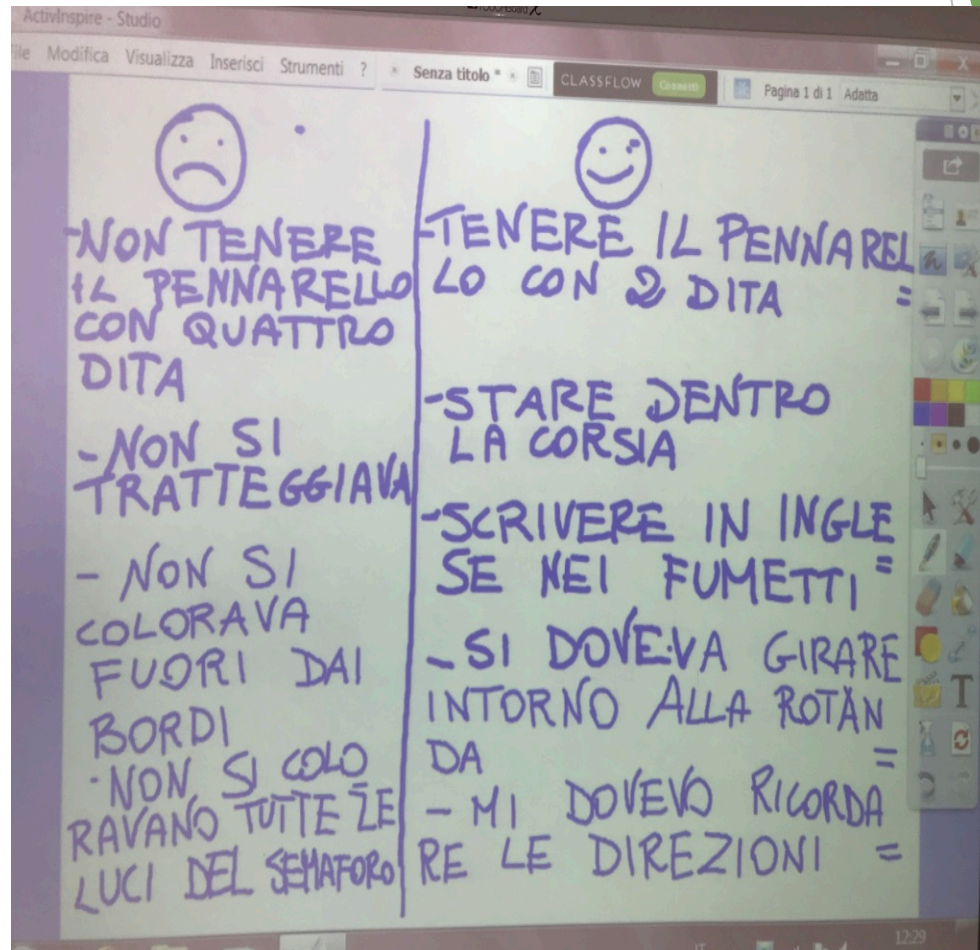 ActivInspire - Studio
Modifica Visualizza Inserisci Strumenti ? Senza titolo * CLASSFLOW Connetti Pagina 1 di 1 Adatta
-NON TENERE
IL PENNARELLO
CON QUATTRO
DITA
-NON SI
TRATTEGGIAVA
- NON SI
COLORAVA
FUORI DAI
BORDI
-NON SI COLO
RAVANO TUTTE LE
LUCI DEL SEMAFORO
-TENERE IL PENNAREL
LO CON 2 DITA =
-STARE DENTRO
LA CORSIA
-SCRIVERE IN INGLE
SE NEI FUMETTI =
-SI DOVEVA GIRARE
INTORNO ALLA ROTAN
DA =
- MI DOVEVO RICORDA
RE LE DIREZIONI =
T
IT
12:29